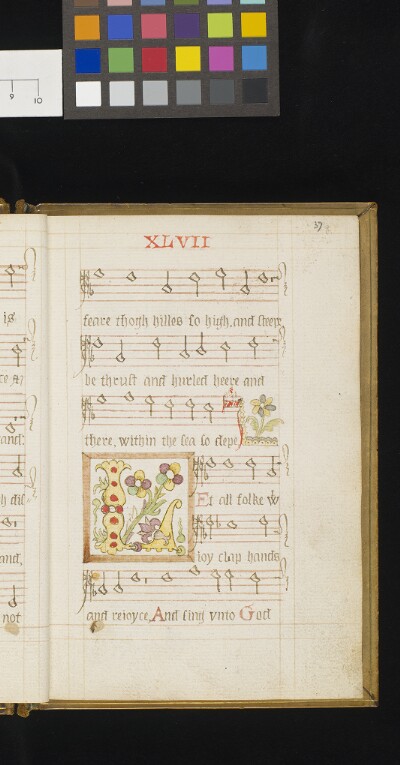 9 10
37
XLVII
is
feare thogh hilles so high, and steepe
be thrust and hurled heere and
there, within the sea so depe
and:
L Et all folke wt
ioy clap hands
and,
and reioyce, And sing vnto God
not